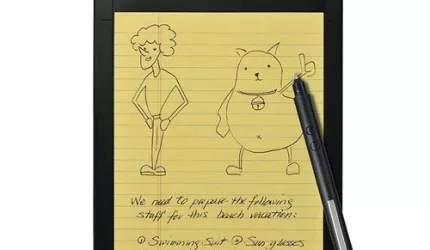 We need to prepare the following
stuff for this beach vacation:
① Swimming Suit ② Sun glasses